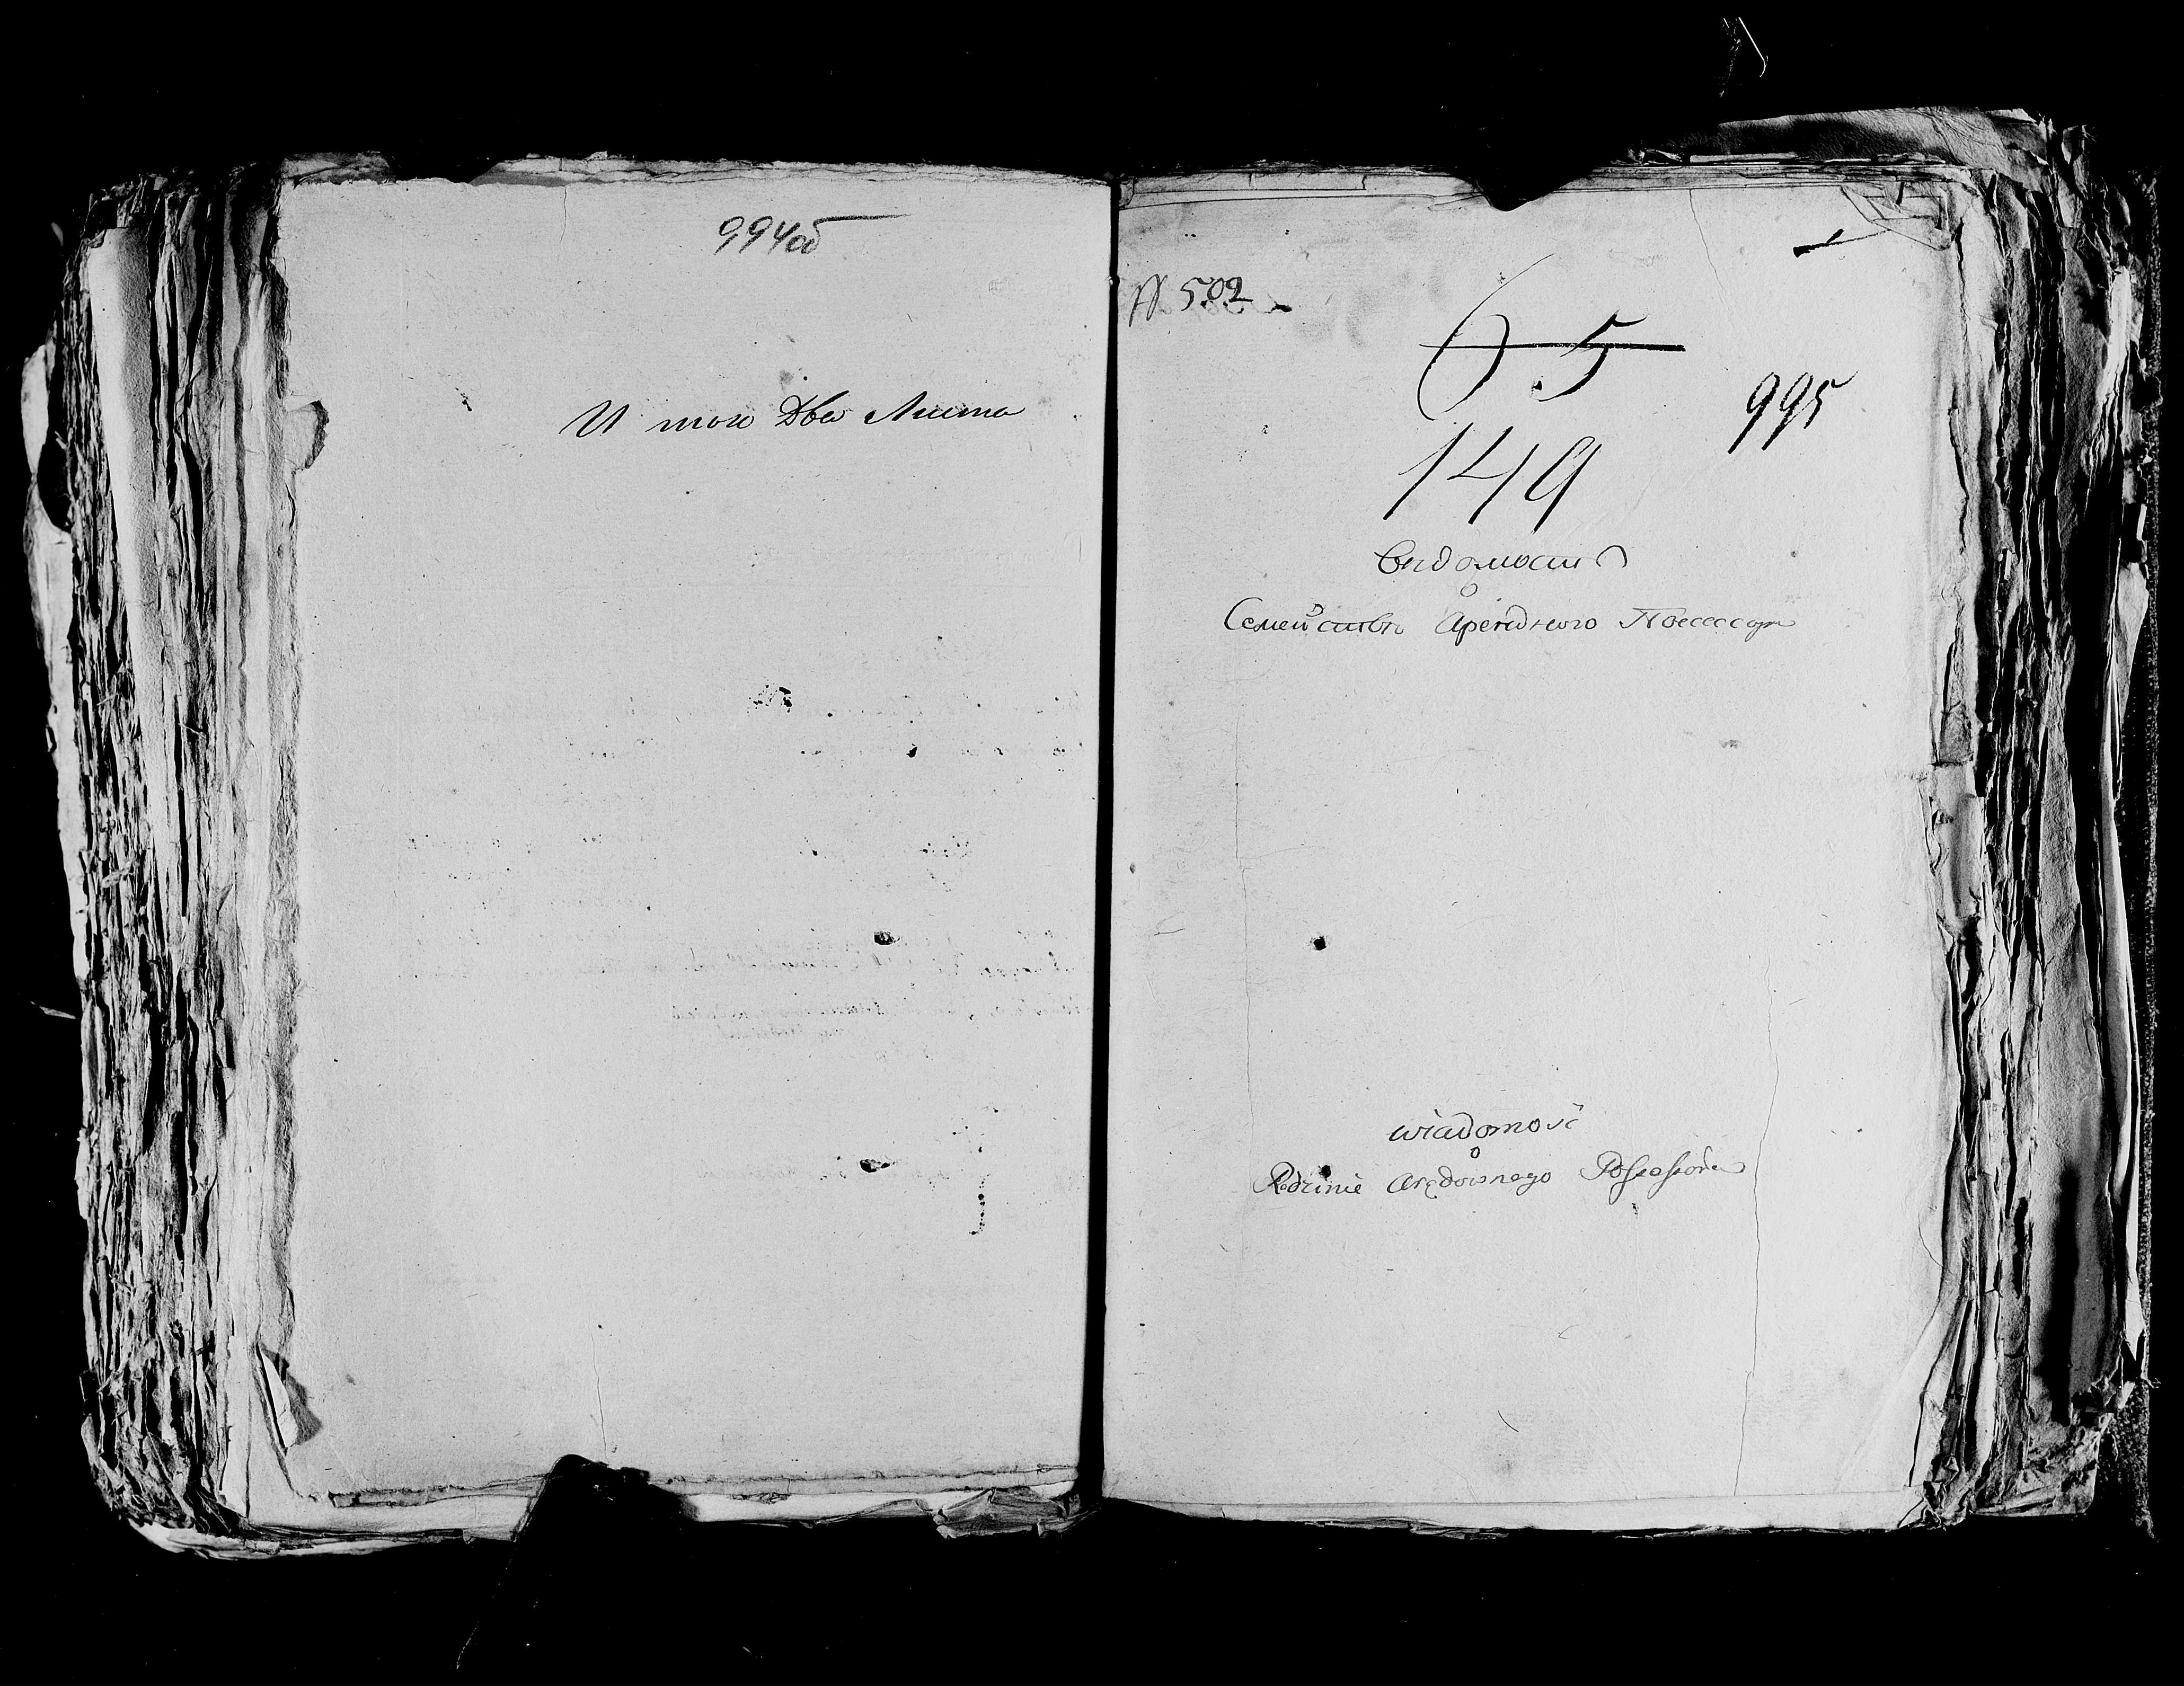 994об
И того Два Листа
N 502
65
995
149
Видомость
о
Семействѣ Арендного Посессора
wiadomość
o
Rodzinie Arędownego Possessora